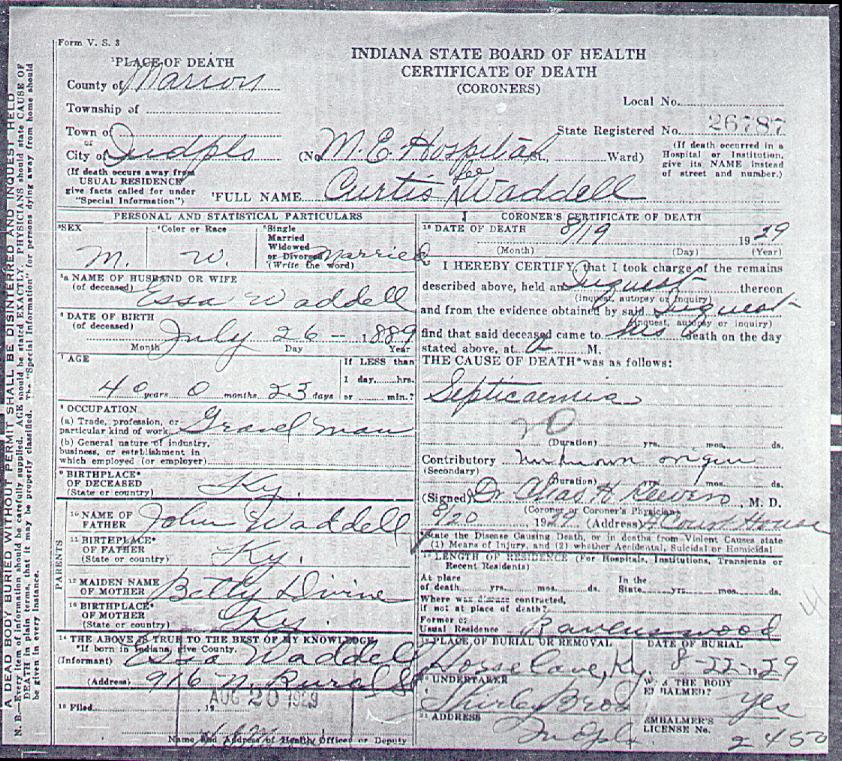 Form V. S. 3
INDIANA STATE BOARD OF HEALTH
CERTIFICATE OF DEATH
(CORONERS)
¹PLACE OF DEATH
County of Marion
Township of
Town of
or
City of Indpls (No. M. E. Hospital St., Ward)
Local No.
State Registered No. 26787
(If death occurred in a Hospital or Institution, give its NAME instead of street and number.)
(If death occurs away from USUAL RESIDENCE give facts called for under "Special Information")
²FULL NAME Curtis Lee Waddell
PERSONAL AND STATISTICAL PARTICULARS
³SEX M.
⁴Color or Race W.
⁵Single Married Widowed or Divorced Married
(Write the word)
⁵ᵃ NAME OF HUSBAND OR WIFE
(of deceased) Essa Waddell
⁶ DATE OF BIRTH
(of deceased) July 26 - 1889
Month Day Year
⁷ AGE
40 years 0 months 23 days
If LESS than 1 day, hrs. or min.?
⁸ OCCUPATION
(a) Trade, profession, or particular kind of work Gravel man
(b) General nature of industry, business, or establishment in which employed (or employer)
⁹ BIRTHPLACE*
OF DECEASED Ky.
(State or country)
PARENTS
¹⁰ NAME OF FATHER John Waddell
¹¹ BIRTHPLACE*
OF FATHER Ky.
(State or country)
¹² MAIDEN NAME OF MOTHER Betty Divine
¹³ BIRTHPLACE*
OF MOTHER Ky.
(State or country)
¹⁴ THE ABOVE IS TRUE TO THE BEST OF MY KNOWLEDGE
*If born in Indiana, give County.
(Informant) Essa Waddell
(Address) 916 N. Rural St
AUG 20 1929
¹⁵ Filed 19
Name and Address of Health Officer or Deputy
CORONER'S CERTIFICATE OF DEATH
¹⁶ DATE OF DEATH 8/19 1929
(Month) (Day) (Year)
I HEREBY CERTIFY, that I took charge of the remains
described above, held an Inquest thereon
(inquest, autopsy or inquiry)
and from the evidence obtained by said Inquest
(inquest, autopsy or inquiry)
find that said deceased came to his death on the day
stated above, at M.
THE CAUSE OF DEATH* was as follows:
Septicaemia
(Duration) yrs. mos. ds.
Contributory unknown origin
(Secondary)
(Duration) yrs. mos. ds.
(Signed) Dr. Chas H. Keever, M. D.
(Coroner or Coroner's Physician)
8/20 1929 (Address) Court House
*State the Disease Causing Death, or in deaths from Violent Causes state (1) Means of Injury, and (2) whether Accidental, Suicidal or Homicidal
LENGTH OF RESIDENCE (For Hospitals, Institutions, Transients or Recent Residents)
At place of death yrs. mos. ds. In the State yrs. mos. ds.
Where was disease contracted, if not at place of death?
Former or Usual Residence Ravenswood
PLACE OF BURIAL OR REMOVAL Horse Cave, Ky.
DATE OF BURIAL 8-22-1929
²⁰ UNDERTAKER Shirley Bros
WAS THE BODY EMBALMED? Yes
²¹ ADDRESS Indpls
EMBALMER'S LICENSE No. 2450
A DEAD BODY BURIED WITHOUT PERMIT SHALL BE DISINTERRED AND INQUEST HELD.
N. B. Every item of information should be carefully supplied. AGE should be stated EXACTLY. PHYSICIANS should state CAUSE OF
DEATH in plain terms, that it may be properly classified. The "Special Information" for persons dying away from home should
be given in every instance.